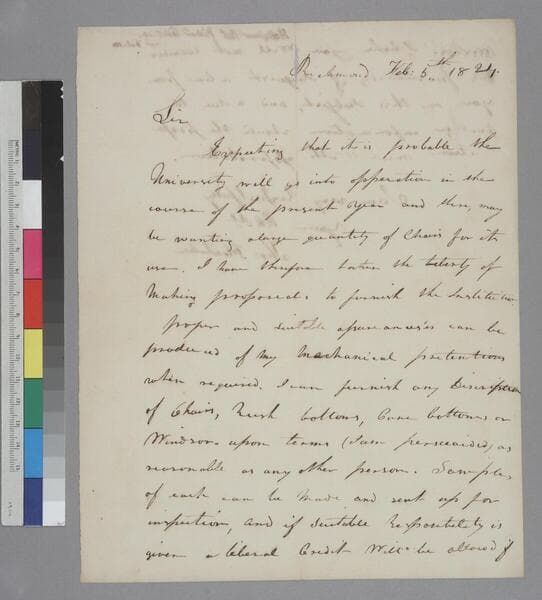 Richmond Feb: 5th 1824.
Sir
Expecting that it is probable the
University will go into opperation in the
course of the present year and there may
be wanting a large quantity of Chairs for its
use. I have therefore taken the liberty of
Making proposals to furnish the Institution
proper and suitable assurances can be
produced of my Mechanical pretentions
when required. I can furnish any Discription
of Chairs, Rush bottoms, Cane bottoms or
Windsors upon terms (I am perswaided) as
reasonable as any other person. Samples
of each can be Made and sent up for
inspection, and if suitable Responcibility is
given a liberal Credit will be allowed if